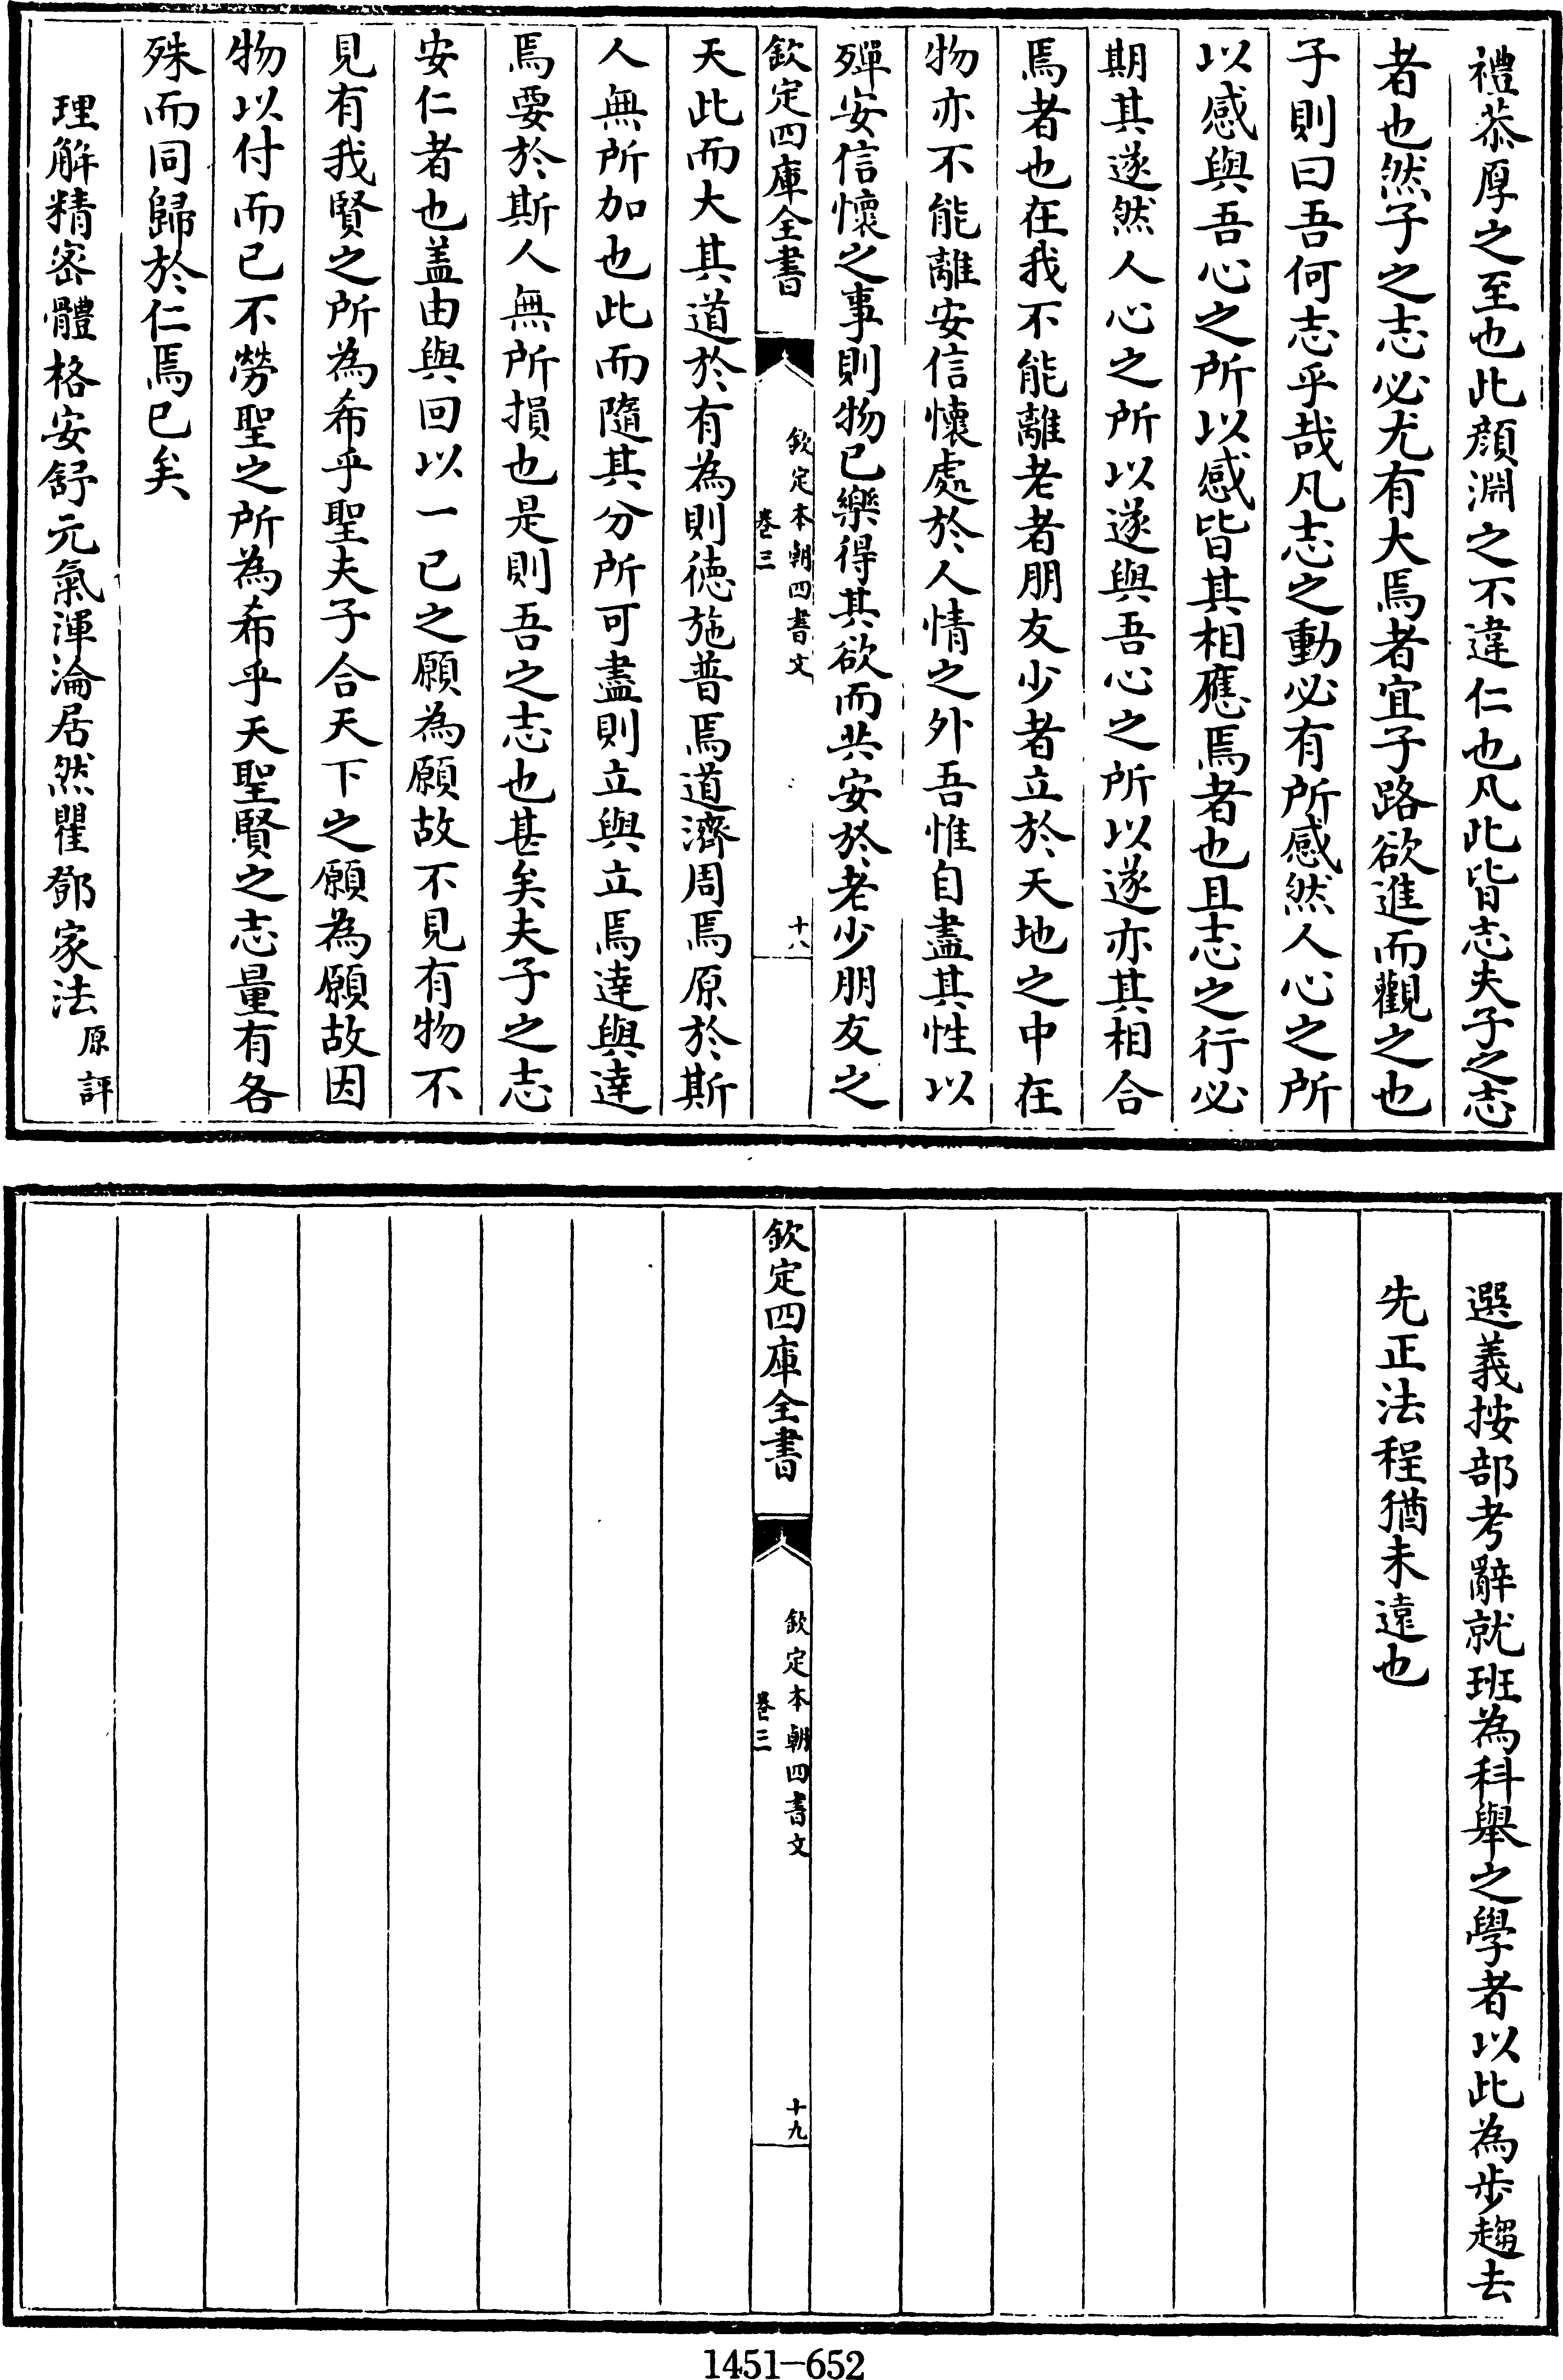 禮恭厚之至也此顔淵之不違仁也凡此皆志夫子之志
者也然子之志必尤有大焉者宜子路欲進而觀之也
子則曰吾何志乎哉凡志之動必有所感然人心之所
以感與吾心之所以感皆其相應焉者也且志之行必
期其遂然人心之所以遂與吾心之所以遂亦其相合
焉者也在我不能離老者朋友少者立於天地之中在
物亦不能離安信懷處於人情之外吾惟自盡其性以
殫安信懷之事則物已樂得其欲而共安於老少朋友之
欽定四庫全書
欽定本朝四書文
卷三
十八
天此而大其道於有為則徳施普焉道濟周焉原於斯
人無所加也此而隨其分所可盡則立與立焉逹與逹
焉要於斯人無所損也是則吾之志也甚矣夫子之志
安仁者也盖由與回以一已之願為願故不見有物不
見有我賢之所為希乎聖夫子合天下之願為願故因
物以付而已不勞聖之所為希乎天聖賢之志量有各
殊而同歸於仁焉已矣
理解精密體格安舒元氣渾淪居然瞿鄧家法原評
選義按部考辭就班為科舉之學者以此為步趨去
先正法程猶未遠也
欽定四庫全書
欽定本朝四書文
卷三
十九
1451-652